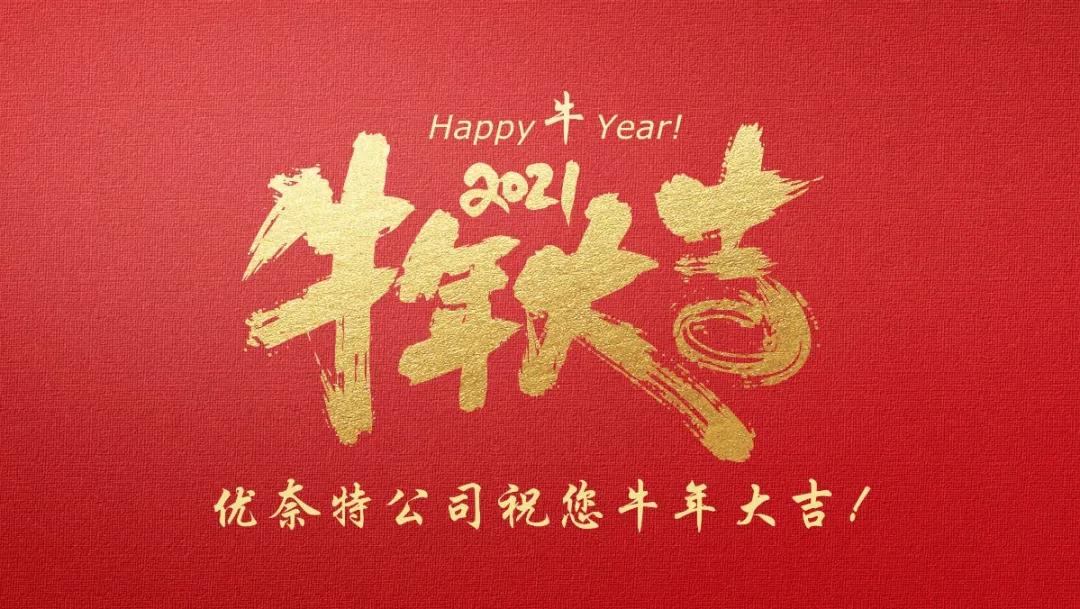 Happy 牛 Year!
2021
牛年大吉
优奈特公司祝您牛年大吉!